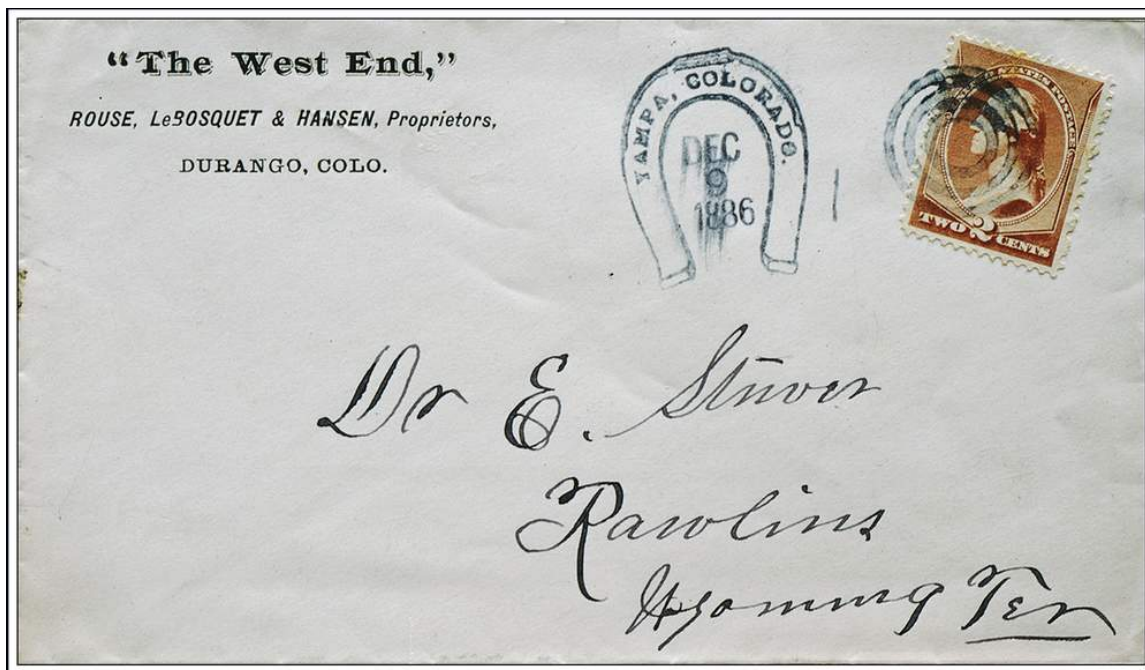 “The West End,”
ROUSE, LeBOSQUET & HANSEN, Proprietors,
DURANGO, COLO.
YAMPA, COLORADO.
DEC
9
1886
TWO 2 CENTS
Dr E. Stuver
Rawlins
Wyoming Ter